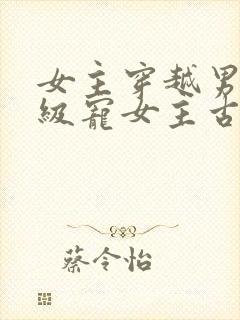 女主穿越男
級寵女主古
蔡令怡